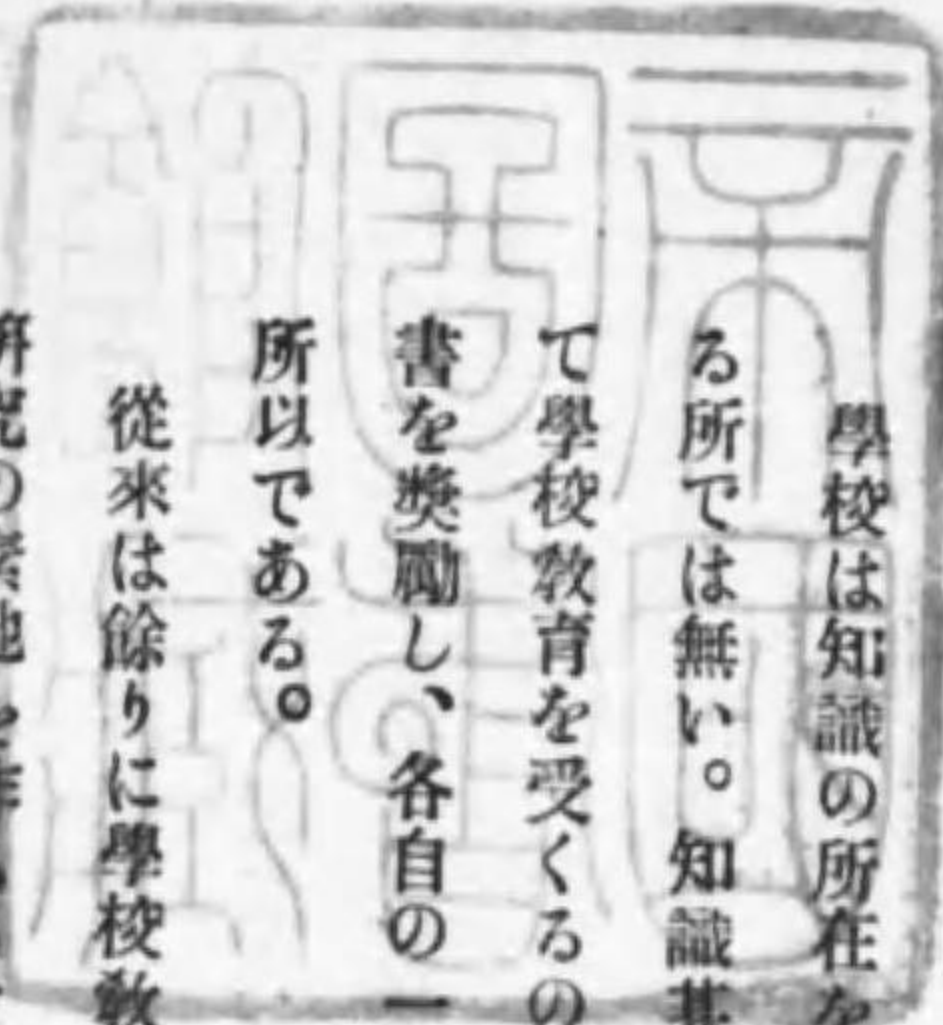 學校は知識の所在を
る所では無い。知識其
て學校敎育を受くるの
書を奬勵し、各自の一
所以である。
從來は餘りに學校敎
硏究の素地を作